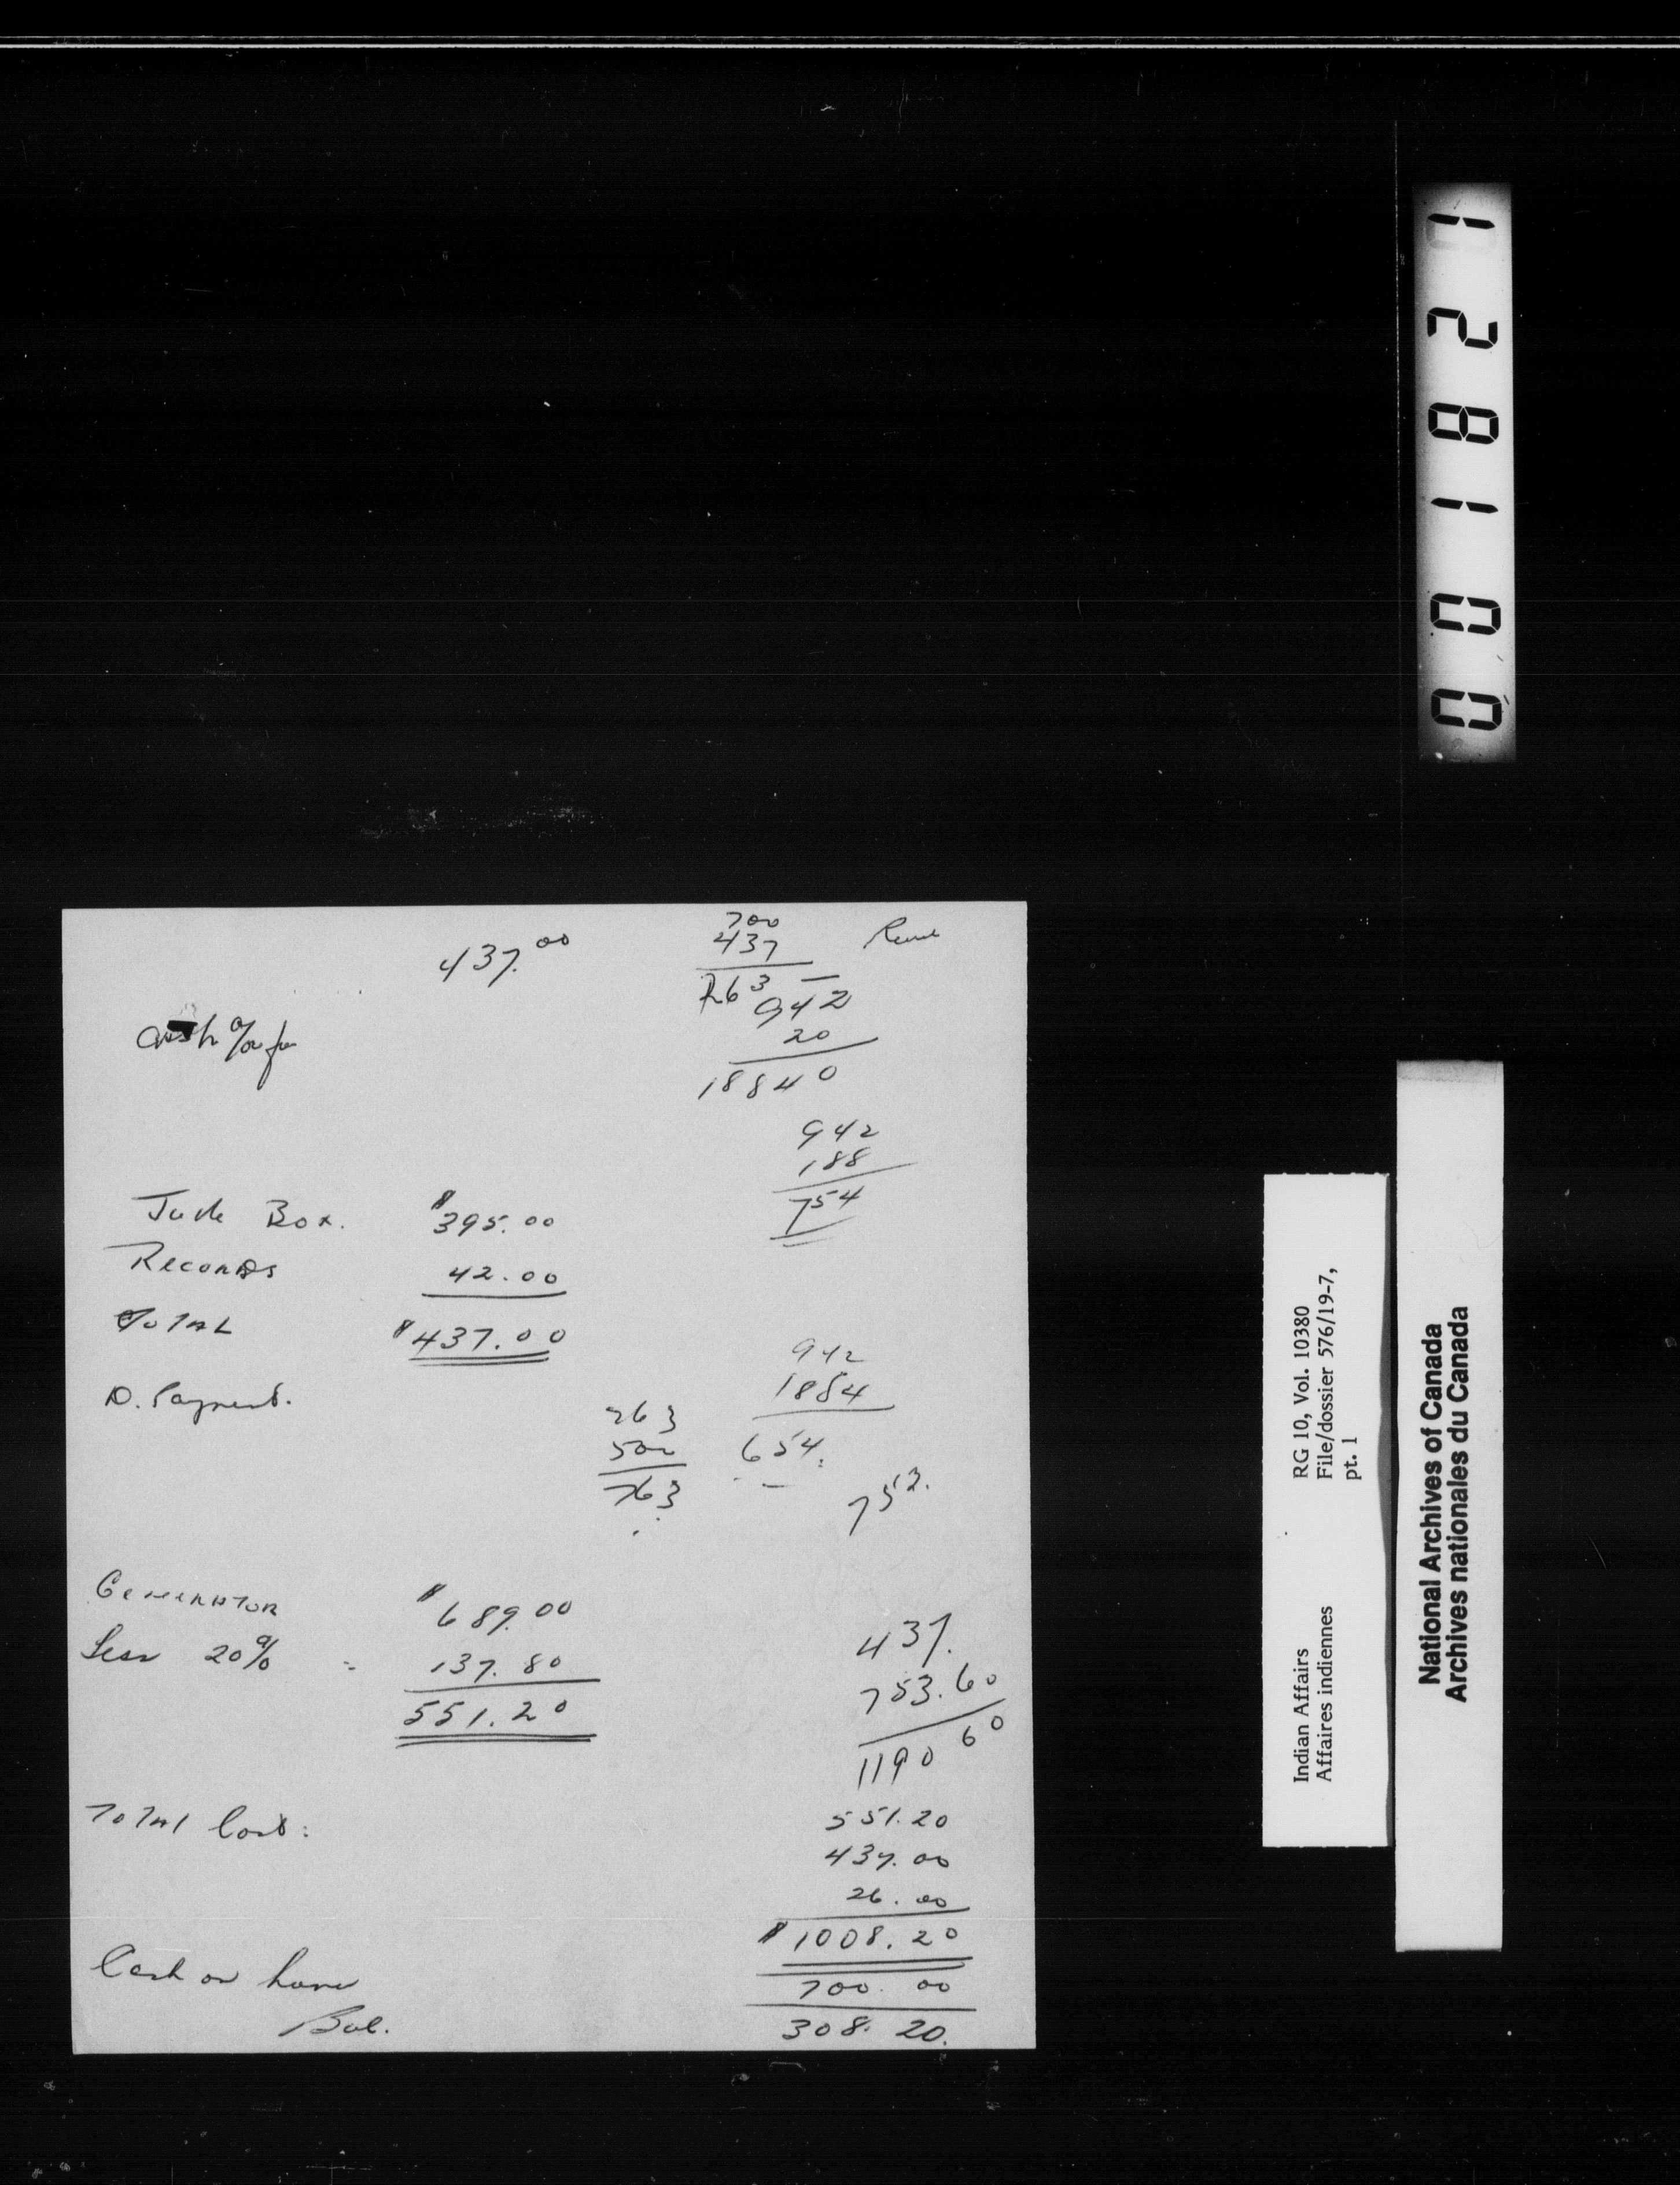 437.00
700
437
263
942
20
18840
942
188
754
Juke Box. $395.00
Records 42.00
Total $437.00
D. Payment.
942
1884
654.
263
500
763
753.
Generator $689.00
Less 20% = 137.80
551.20
437.
753.60
1190 60
Total Cost:
551.20
437.00
26.00
$1008.20
Cash on hand 700.00
Bal. 308.20.
001821
Indian Affairs RG 10, Vol. 10380
Affaires indiennes File/dossier 576/19-7,
pt. 1
National Archives of Canada
Archives nationales du Canada